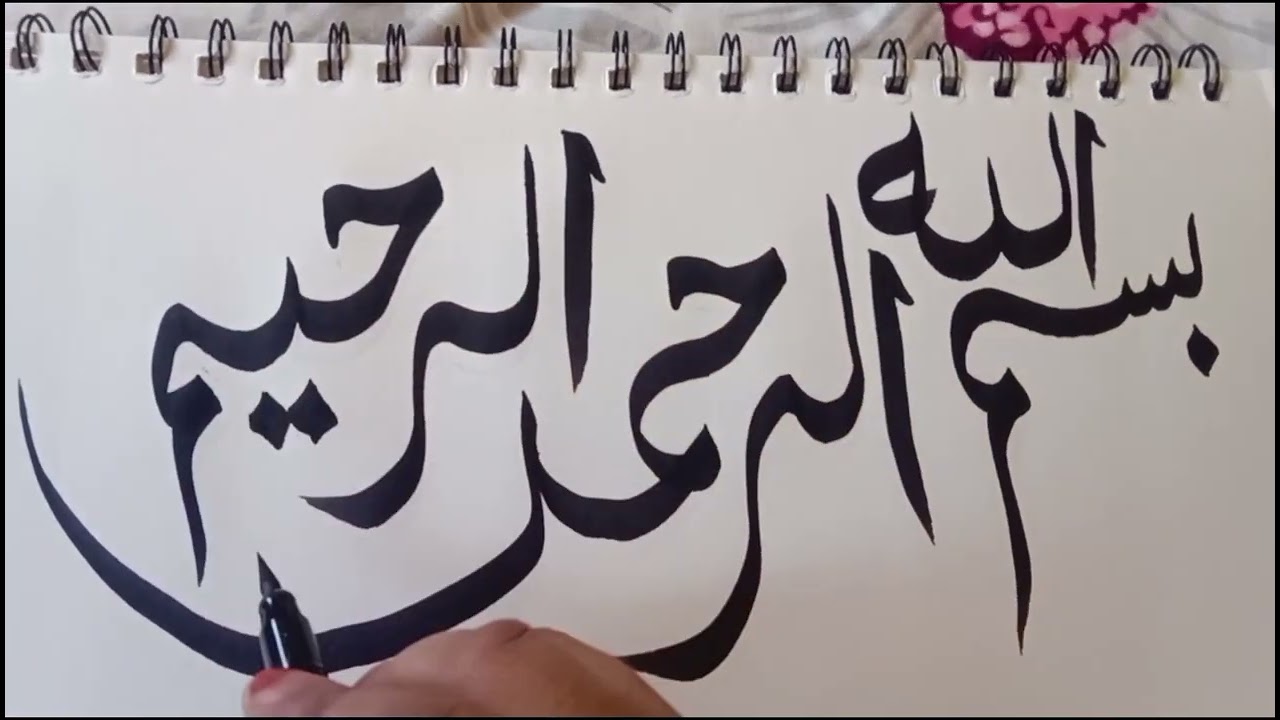 بسم الله الرحمں الرحيم